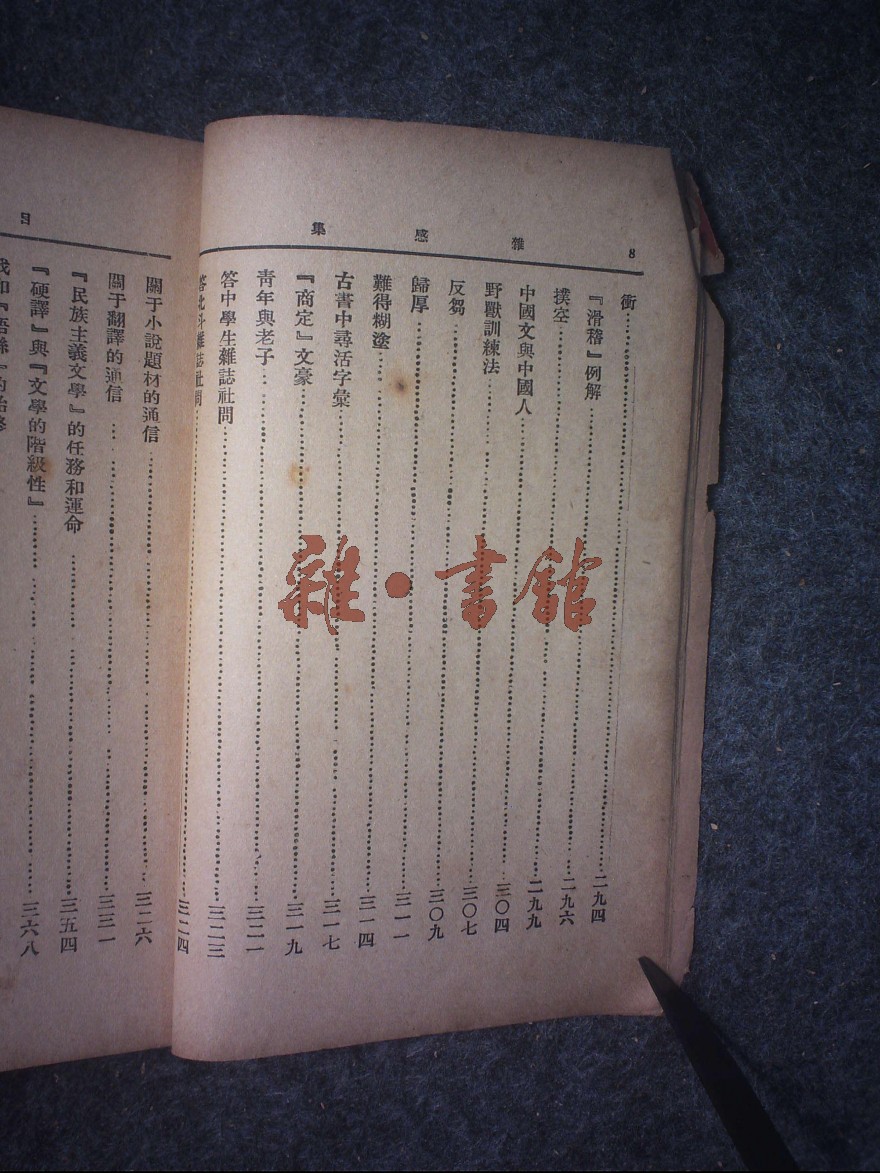 8 雜感集
衝……二九四
『滑稽』例解……二九六
撲空……二九九
中國文與中國人……三〇四
野獸訓練法……三〇七
反芻……三〇九
歸厚……三一一
難得糊塗……三一四
古書中尋活字彙……三一七
『商定』文豪……三一九
青年與老子……三二一
答中學生雜誌社問……三二三
答北斗雜誌社問……三二四
目
關于小說題材的通信……三二六
關于翻譯的通信……三三一
『民族主義文學』的任務和運命……三五四
『硬譯』與『文學的階級性』……三六八
我和『語絲』的始終
雜·書館